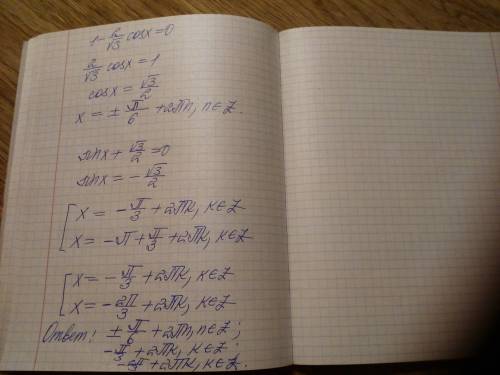 1 - 2/√3 cosx = 0
2/√3 cosx = 1
cosx = √3/2
x = ± π/6 + 2πn, n ∈ Z.
sinx + √3/2 = 0
sinx = - √3/2
[ x = - π/3 + 2πk, k ∈ Z
x = - π + π/3 + 2πk, k ∈ Z
[ x = - π/3 + 2πk, k ∈ Z
x = - 2π/3 + 2πk, k ∈ Z
Ответ: ± π/6 + 2πn, n ∈ Z;
- π/3 + 2πk, k ∈ Z;
+ 2πk, k ∈ Z.